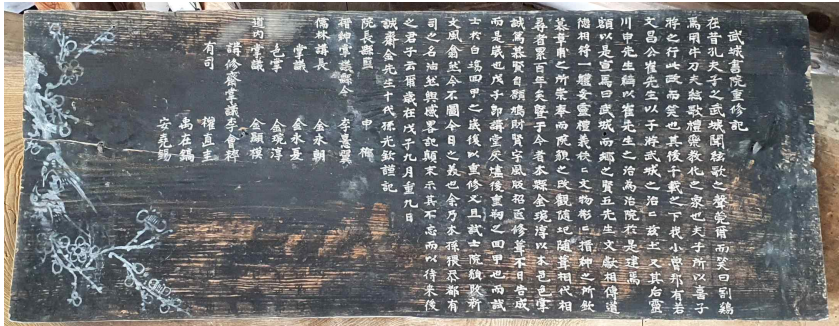 武城書院重修記
在昔孔夫子之武城聞絃歌之聲莞爾而笑曰割鷄
焉用牛刀夫絃歌禮樂敎化之象也夫子所以喜子
游之行此政而笑也其後千載之下我小魯邦有若
文昌公崔先生以子游武城之治治玆土又其后靈
川申先生繼以崔先生之治爲治院於是建焉
額以是宣焉曰武城而鄕之賢五先生文獻相傳道
德相符一軆妥靈禮義秩秩文物彬彬搢紳之所欽
慕章甫之所崇奉而院貌之改觀隨圮隨葺相代相
尋者累百年矣曁于今者本縣金琬淳以本邑色掌
誠篤慕賢自願鳩財賢宇風販招匠修葺不日告成
而是歲也戊子卽講堂灰燼後重刱之四甲也而試
士於白場四甲之歲後以重修又且試士院貌改新
文風蔚然今不圖今日之義也余乃本孫猥忝都有
司之名油然興感畧記顚末示其不忘而以待來後
之君子云爾歲在戊子九月重九日
誠齋金先生十代孫光欽謹記
院長縣監 申橋
搢紳掌議縣令 李惠翼
儒林講長 金永朝
堂議 金永蔓
色掌 金琬淳
道內掌議 金顯稷
講修齋掌議 李會稡
有司 權直圭
禹在鎬
安克賜